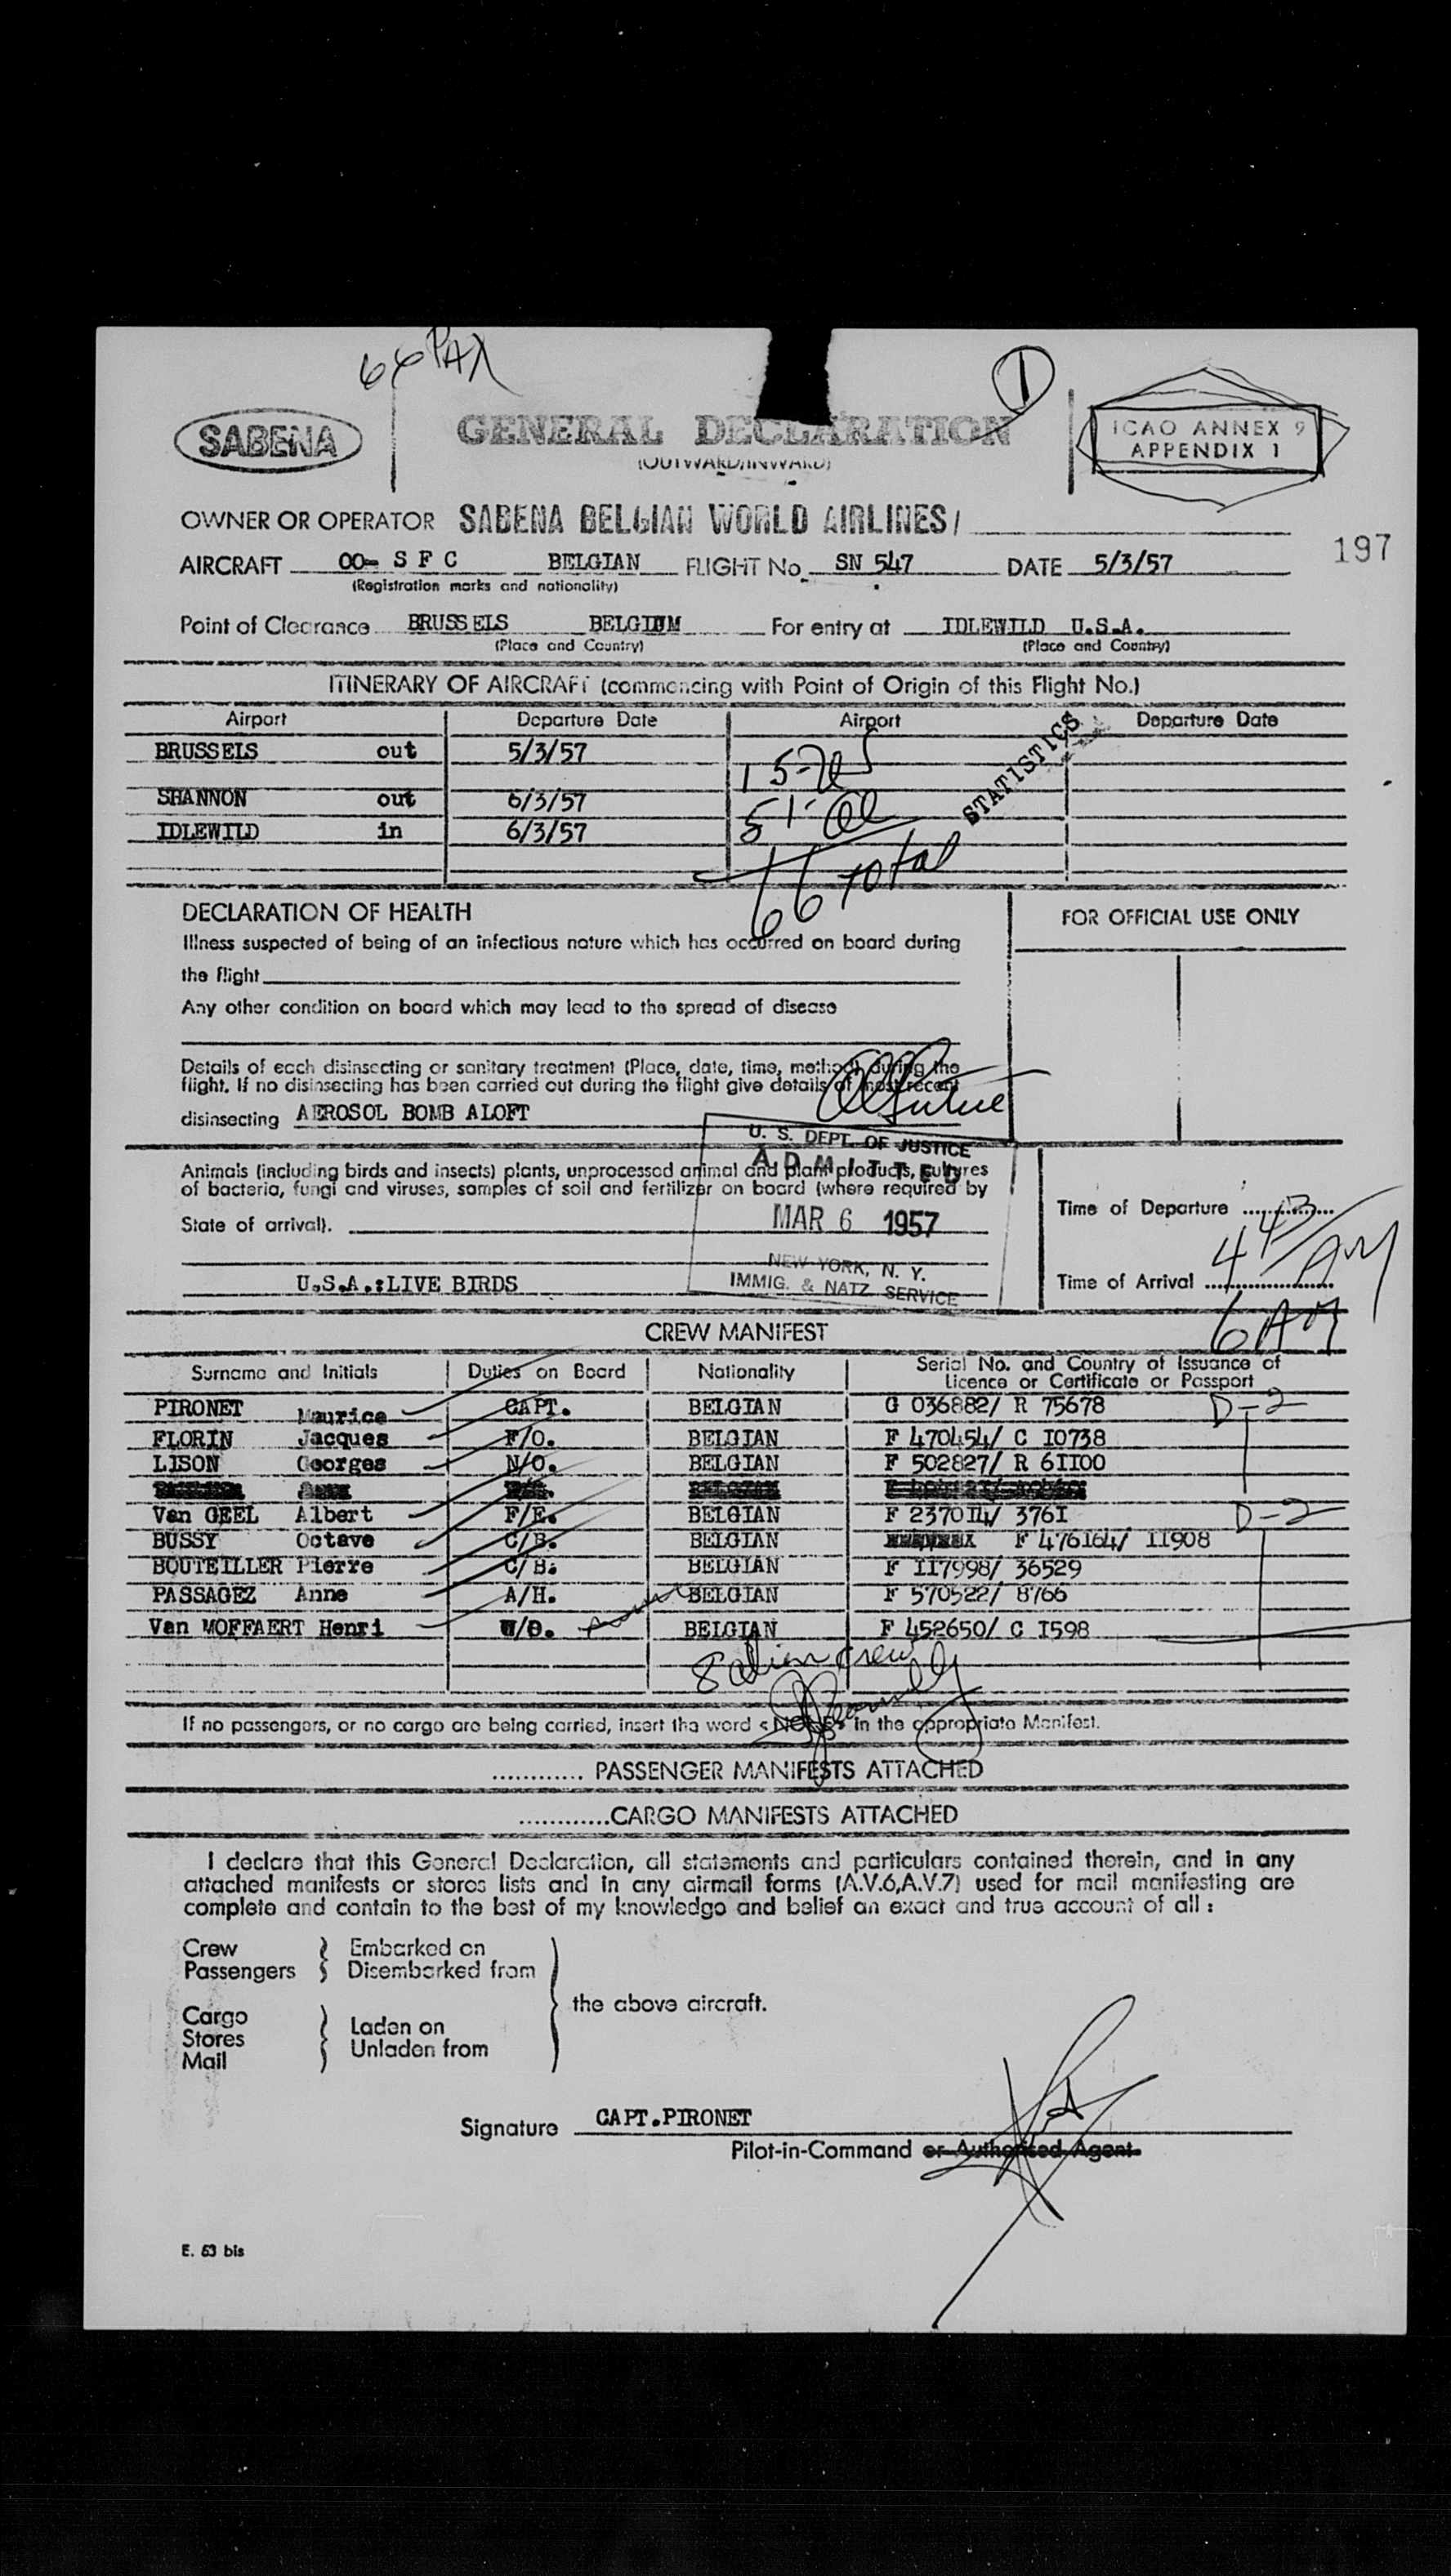 66 PAX
1
SABENA
GENERAL DECLARATION
(OUTWARD/INWARD)
ICAO ANNEX 9
APPENDIX 1
OWNER OR OPERATOR SABENA BELGIAN WORLD AIRLINES/
197
AIRCRAFT OO- S F C BELGIAN FLIGHT No. SN 547 DATE 5/3/57
(Registration marks and nationality)
Point of Clearance BRUSSELS BELGIUM For entry at IDLEWILD U.S.A.
(Place and Country) (Place and Country)
ITINERARY OF AIRCRAFT (commencing with Point of Origin of this Flight No.)
Airport Departure Date Airport Departure Date
BRUSSELS out 5/3/57
SHANNON out 6/3/57
IDLEWILD in 6/3/57
STATISTICS
66 Total
DECLARATION OF HEALTH
FOR OFFICIAL USE ONLY
Illness suspected of being of an infectious nature which has occurred on board during
the flight
Any other condition on board which may lead to the spread of disease
Details of each disinsecting or sanitary treatment (Place, date, time, method) during the
flight. If no disinsecting has been carried out during the flight give details of most recent
disinsecting AEROSOL BOMB ALOFT
U. S. DEPT. OF JUSTICE
ADMITTED
MAR 6 1957
NEW YORK, N. Y.
IMMIG. & NATZ. SERVICE
Animals (including birds and insects) plants, unprocessed animal and plant products, cultures
of bacteria, fungi and viruses, samples of soil and fertilizer on board (where required by
State of arrival).
U.S.A.:LIVE BIRDS
Time of Departure
443 AM
Time of Arrival
6 AM
CREW MANIFEST
Surname and Initials Duties on Board Nationality Serial No. and Country of Issuance of
Licence or Certificate or Passport
PIRONET Maurice CAPT. BELGIAN G 036882/ R 75678 D-2
FLORIN Jacques F/O. BELGIAN F 470454/ C I0738
LISON Georges N/O. BELGIAN F 502827/ R 6II00
Van GEEL Albert F/E. BELGIAN F 2370I4/ 376I D-2
BUSSY Octave C/B. BELGIAN F 476164/ II908
BOUTEILLER Pierre C/B. BELGIAN F II7998/ 36529
PASSAGEZ Anne A/H. BELGIAN F 570522/ 8766
Van MOFFAERT Henri BELGIAN F 452650/ C I598
8 alien crew
If no passengers, or no cargo are being carried, insert the word «NONE» in the appropriate Manifest.
............ PASSENGER MANIFESTS ATTACHED
............ CARGO MANIFESTS ATTACHED
I declare that this General Declaration, all statements and particulars contained therein, and in any
attached manifests or stores lists and in any airmail forms (A.V.6,A.V.7) used for mail manifesting are
complete and contain to the best of my knowledge and belief an exact and true account of all :
Crew Embarked on
Passengers Disembarked from
the above aircraft.
Cargo
Stores Laden on
Mail Unladen from
Signature CAPT.PIRONET
Pilot-in-Command or Authorised Agent
E. 53 bis